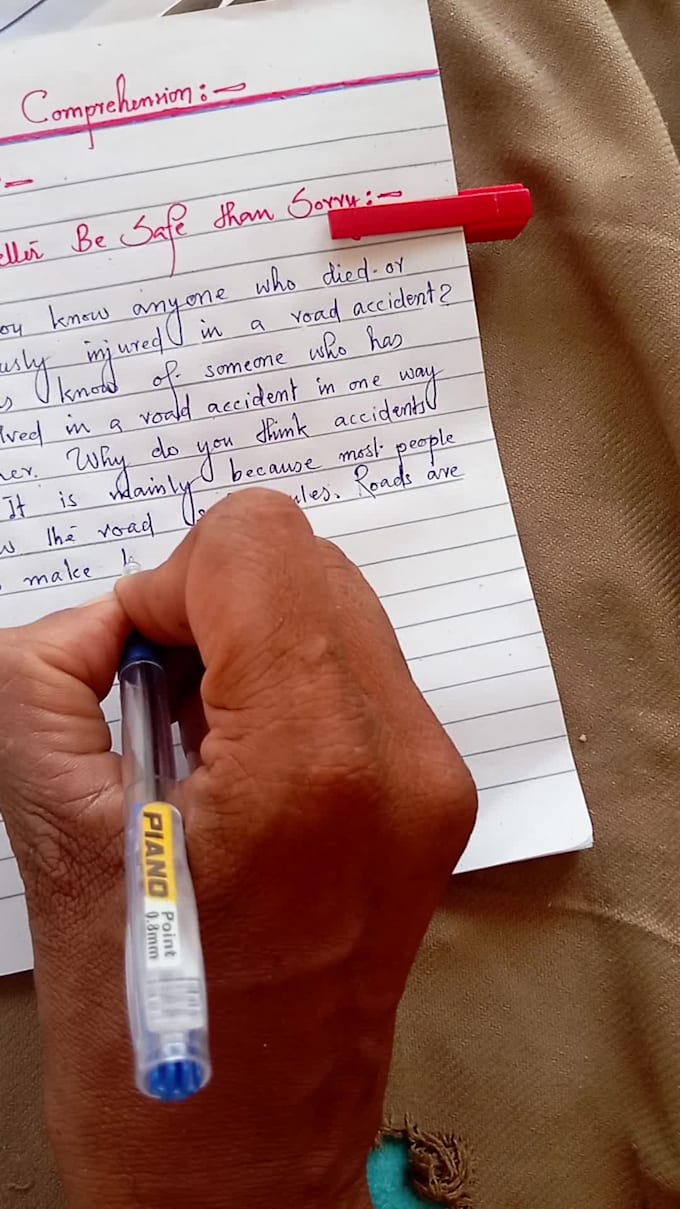 Comprehension:-
Be Safe than Sorry:-
know anyone who died or
injured in a road accident?
know of someone who has
in a road accident in one way
Why do you think accidents
It is mainly because most people
the road Roads are
make
PIANO
Point
0.8mm